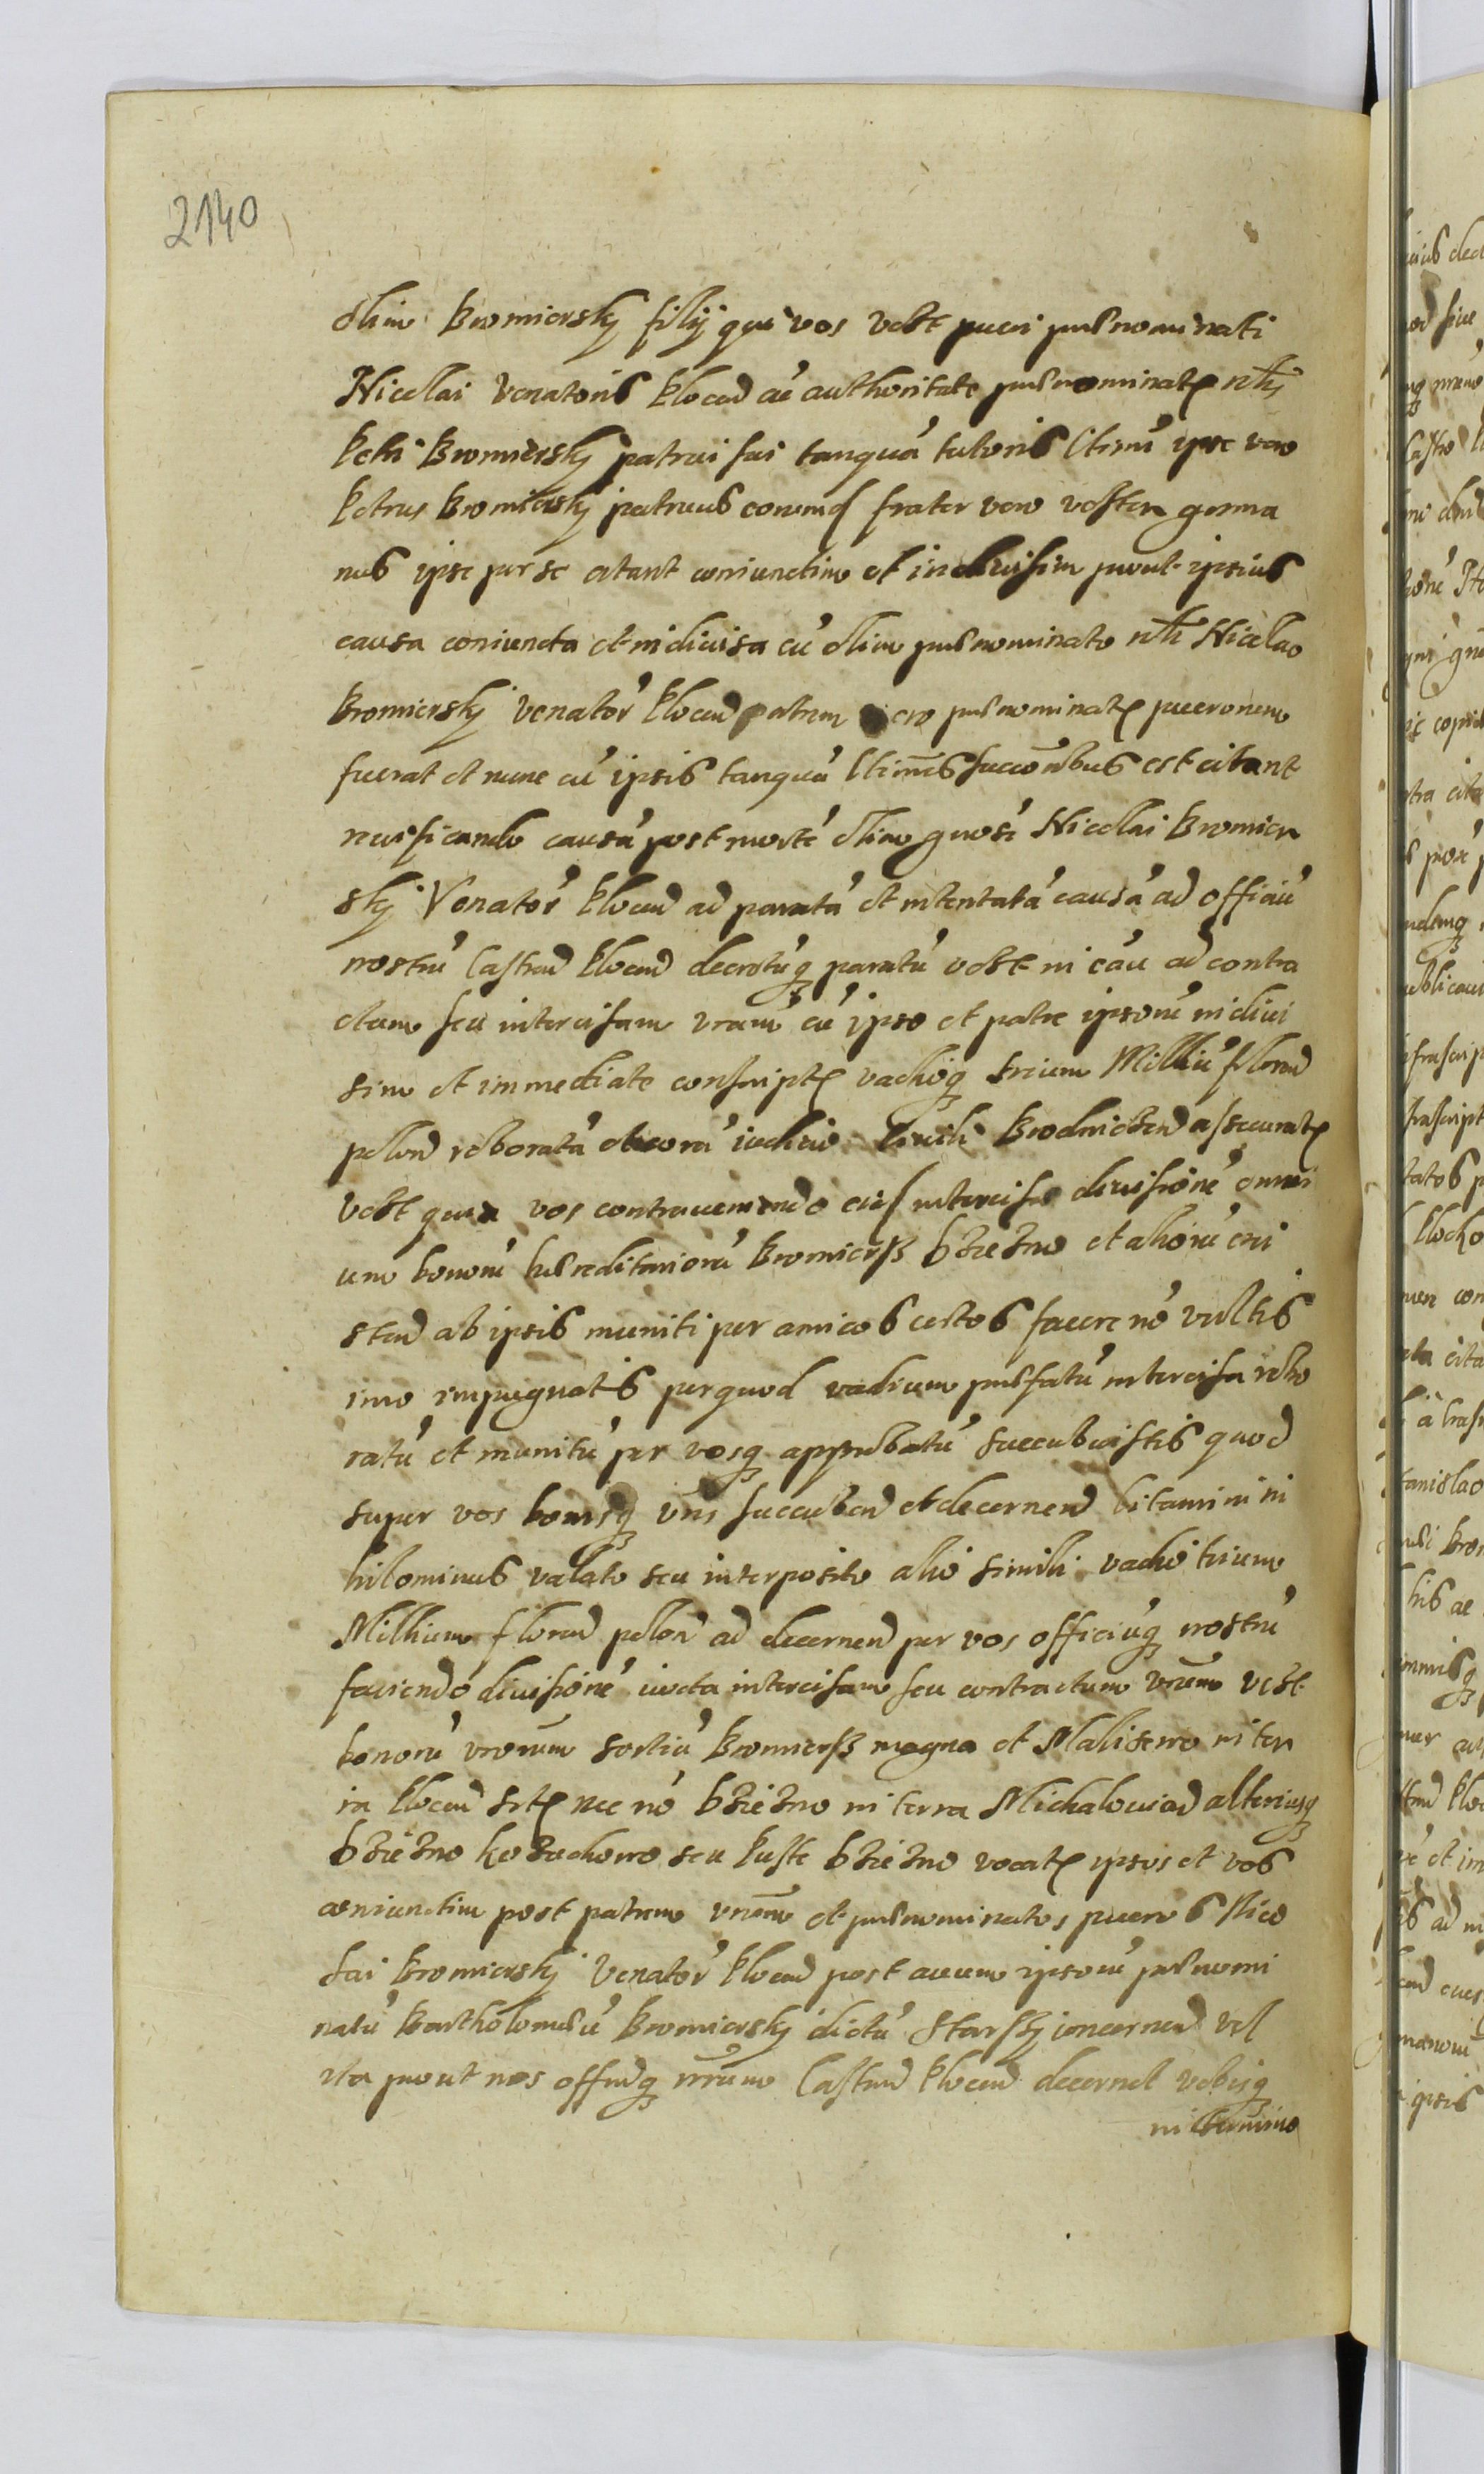 2140
olim Bromiersky filij qui vos videlt pueri prænominati
Nicolai Venatoris Plocen ac authoritate prænominati nobilis
Petri Bromiersky patrui sui tanquā tutoris ltimi ipse vero
Petrus Bromiersky patruus eorund frater vero vester germa
nus ipse per se citant coniunctim et indivisim prout ipsius
causa coniuncta et indivisa cū olim prænominato nobili Nicolao
Bromiersky Venator Plocen patrem vero prænominat puerorum
fuerat et nunc cū ipsis tanquā ltimis succoribus est citant
reuificando causā post mortē olim gnosi Nicolai Bromier
sky Venator Plocen ad paratā et intentatā causā ad officiū
nostrū Castren Plocen decretūq paratū videlt in cau ad contra
ctum seu intercisam vram cū ipso et patre ipsorū indiui
sim et immediate conscript vadioq trium Milliū floren
polon roboratā et corā iudicio Civili Brodnicen assecurat
videlt quia vos contraueniendo eid intercisæ diuisionē omni
um bonorū hæreditariorū Bromierß brzezno et aliorū exi
sten ab ipsis muniti per amicos certos facere nō vultis
imo impugnatis perquod vadium præfatū intercisa robo
ratū et munitū per vosq approbatū succubuistis quod
super vos bonisq vris succuben et decernen citamini ni
hilominus valato seu interposito alio simili vadio trium
Millium floren polon ad decernen per vos officiūq nostrū
faciendo diuisionē iuxta intercisam seu contractum vrum videlt
bonorū vrorum sortiū Bromierß magna et Maliszewo in ter
ra Plocen sit nec nō brzezno in terra Michalouien alteriusq
brzezno kozuchowo seu Puste brzezno vocat ipsos et vos
coniunctim post patrem vrum et prænominatos pueros Nico
lai Bromiersky Venator Plocen post auum ipsorū prænomi
natū Bartholomæū Bromiersky dictū Starsßy concernen vel
ita prout nos offmq nrum Castren Plocen decernet vobisq
in termino